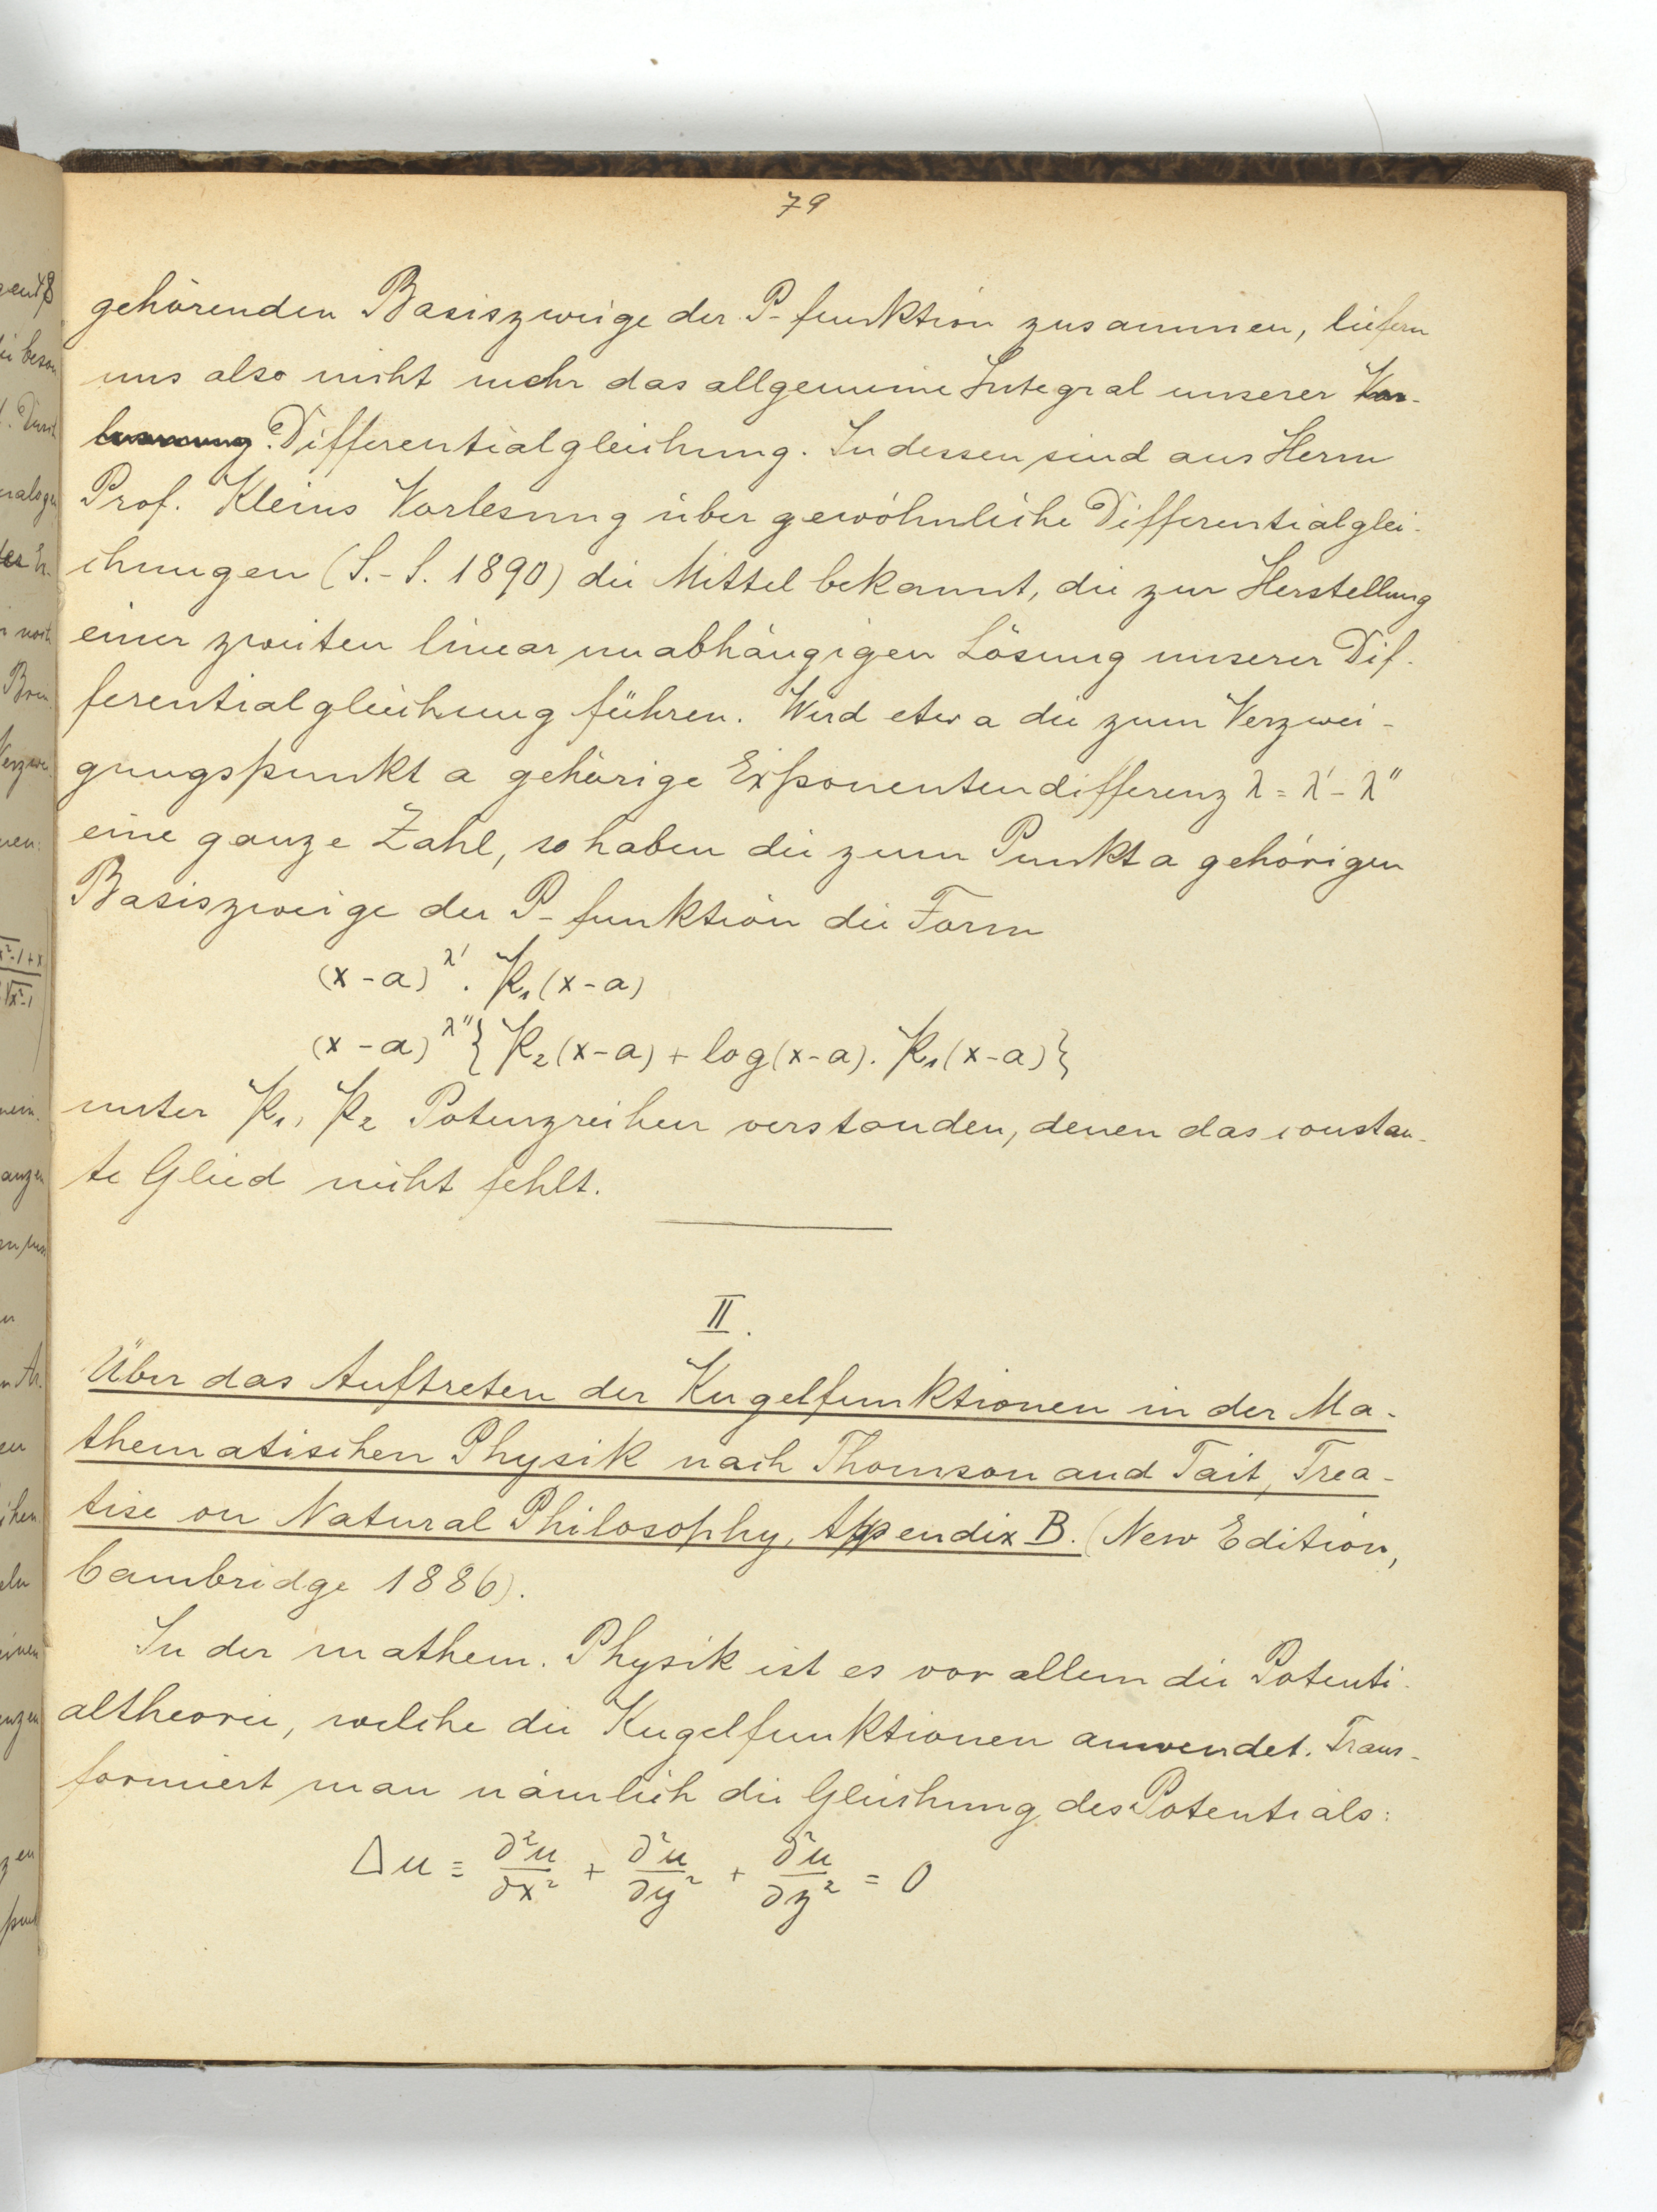 79
gehörenden Basiszweige der P-funktion zusammen, liefern
uns also nicht mehr das allgemeine Integral unserer
Differentialgleichung. Indessen sind aus Herrn
Prof. Kleins Vorlesung über gewöhnliche Differentialglei-
chungen (S.-S. 1890) die Mittel bekannt, die zur Herstellung
einer zweiten linear unabhängigen Lösung unserer Dif-
ferentialgleichung führen. Wird etwa die zum Verzwei-
gungspunkt a gehörige Exponentendifferenz λ = λ' - λ''
eine ganze Zahl, so haben die zum Punkt a gehörigen
Basiszweige der P-funktion die Form
(x-a)^λ' · 𝔓₁(x-a)
(x-a)^λ'' { 𝔓₂(x-a) + log(x-a) · 𝔓₁(x-a) }
unter 𝔓₁, 𝔓₂ Potenzreihen verstanden, denen das constan-
te Glied nicht fehlt.
II.
Über das Auftreten der Kugelfunktionen in der Ma-
thematischen Physik nach Thomson and Tait, Trea-
tise on Natural Philosophy, Appendix B. (New Edition,
Cambridge 1886).
In der mathem. Physik ist es vor allem die Potenti-
altheorie, welche die Kugelfunktionen anwendet. Trans-
formiert man nämlich die Gleichung des Potentials:
Δu = ∂²u/∂x² + ∂²u/∂y² + ∂²u/∂z² = 0